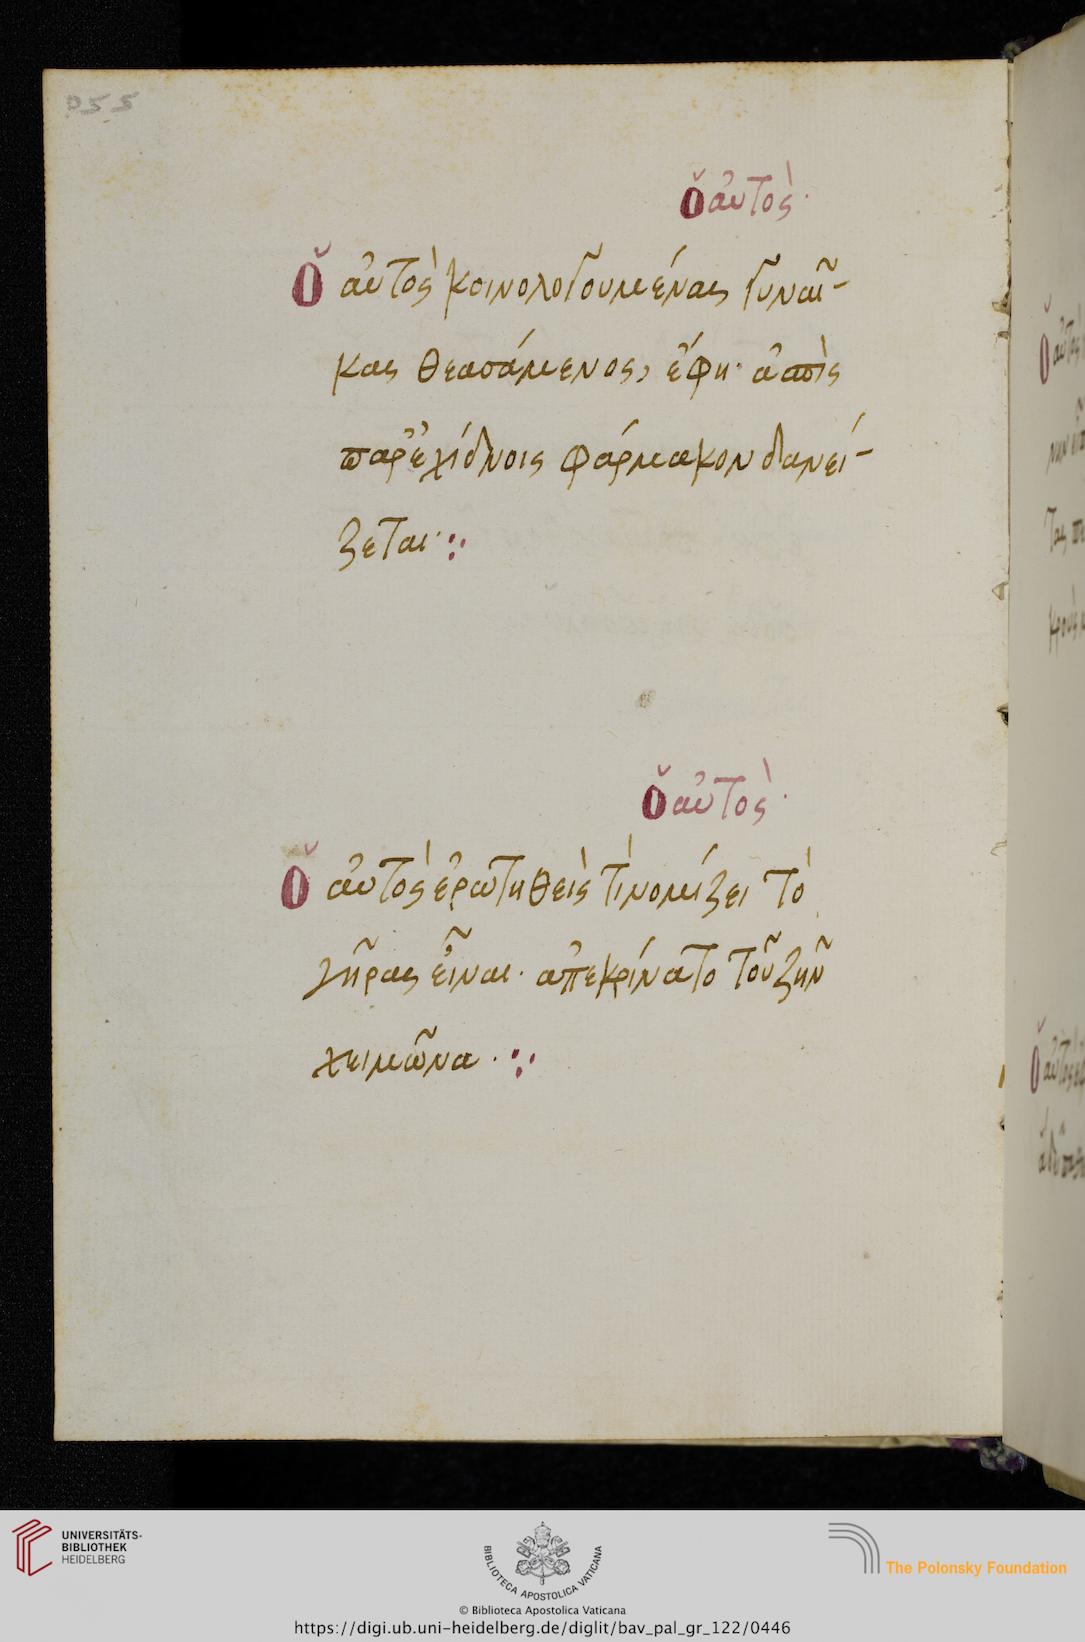 055
Ὁ αὐτὸς.
Ὁ αὐτὸς κοινολογουμένας γυναῖ-
κας θεασάμενος, ἔφη· ἀσπὶς
παρ' ἐχίδνοις φάρμακον δανεί-
ζεται·
Ὁ αὐτὸς.
Ὁ αὐτὸς ἐρωτηθεὶς τὶ νομίζει τὸ
γῆρας εἶναι. ἀπεκρίνατο τοῦ ζῆν
χειμῶνα.
UNIVERSITÄTS-
BIBLIOTHEK
HEIDELBERG
BIBLIOTECA APOSTOLICA VATICANA
The Polonsky Foundation
© Biblioteca Apostolica Vaticana
https://digi.ub.uni-heidelberg.de/diglit/bav_pal_gr_122/0446